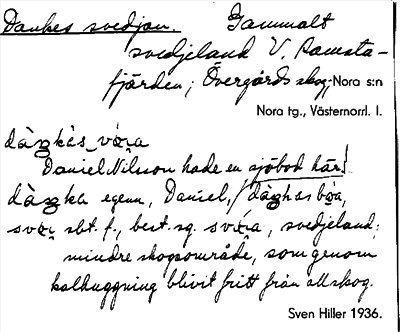 Dankes svedjan. Gammalt
svedjeland V. Ramsta-
fjärden; Övergårds skog. Nora s:n
Nora tg., Västernorrl. l.
dàŋkəs
Daniel Nilsson hade en sjöbod här.
dàŋka egenn, Daniel, / dàŋkas
sbt. f., best. sg. svedjeland;
mindre skogsområde, som genom
kolhuggning blivit fritt från all skog.
Sven Hiller 1936.